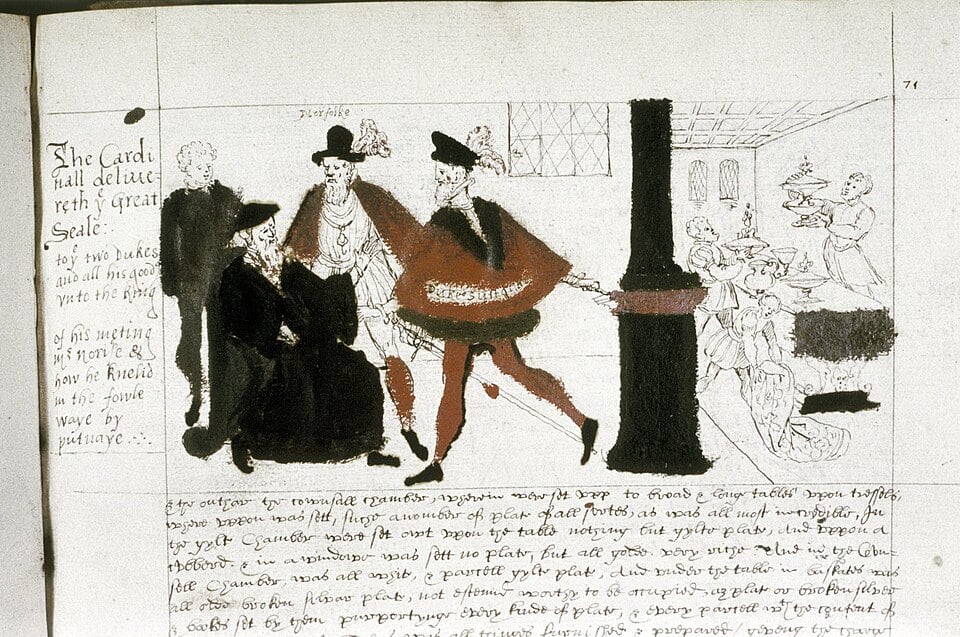 71
Norfolke
The Cardi
nall delive=
reth yͤ Great
Seale:
to yͤ two Dukes
and all his good
vnto the King
of his meting
mͬ Noris &
how he knelid
in the fowle
waye by
putnaye
Duke Suff
& the outhar the counsall chamber, wherein were set vpp to broad & longe tables vpon tressels,
where vppon was sett, suche a nomber of plate of all sortes, as was all most incredible, In
the gylt Chamber were set owt vppon the table nothing but gylte plate, and vppon a
cubberd, & in a windowe was sett no plate, but all golde very riche And in the Coun=
sell Chamber was all whit, & parcell gylte plate, And vnder the table in baskates was
all olde broken silvar plate, not estemid worthy to be occupied, as plat or broken silver
& bookes set by them purportynge every kinde of plate, & every parcell wͭ the content of
all thinges furnished & prepared, geveng the charge